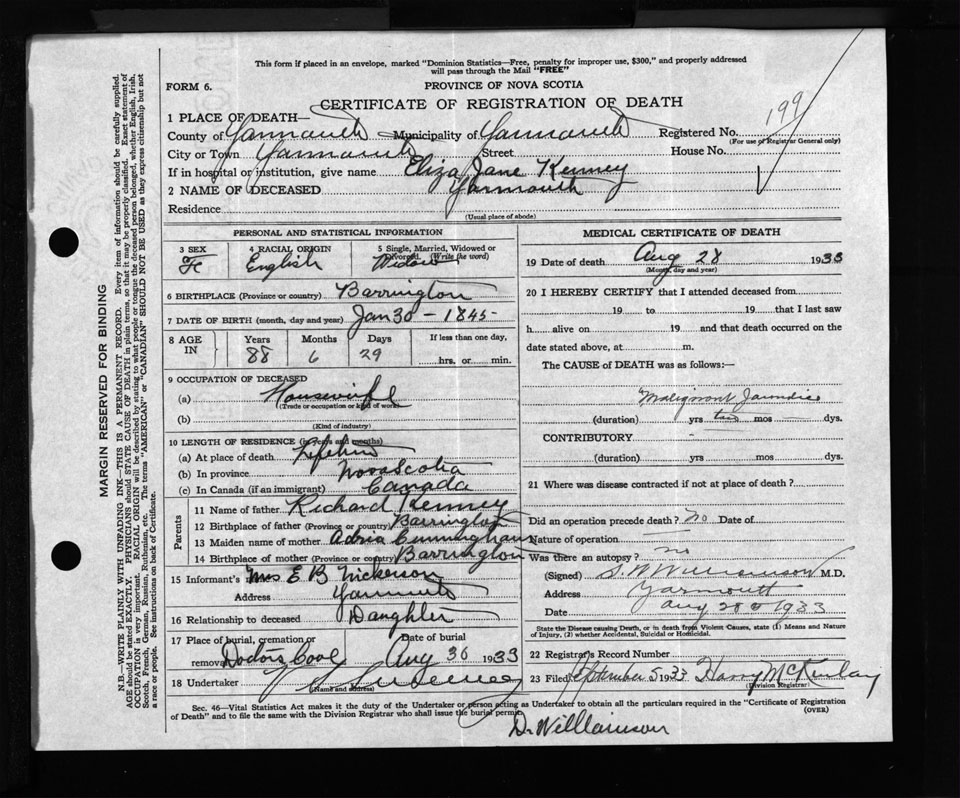 This form if placed in an envelope, marked "Dominion Statistics—Free, penalty for improper use, $300," and properly addressed
will pass through the Mail "FREE"
FORM 6.
PROVINCE OF NOVA SCOTIA
CERTIFICATE OF REGISTRATION OF DEATH
199
1 PLACE OF DEATH—
County of Yarmouth Municipality of Yarmouth Registered No.
(For use of Registrar General only)
City or Town Yarmouth Street House No.
If in hospital or institution, give name Eliza Jane Kenney
2 NAME OF DECEASED Yarmouth
Residence
(Usual place of abode)
PERSONAL AND STATISTICAL INFORMATION
3 SEX 4 RACIAL ORIGIN 5 Single, Married, Widowed or Divorced. (Write the word)
Fe English Widow
6 BIRTHPLACE (Province or country) Barrington
7 DATE OF BIRTH (month, day and year) Jan 30 - 1845-
8 AGE IN Years Months Days If less than one day,
88 6 29 hrs. or min.
9 OCCUPATION OF DECEASED
(a) Housewife
(Trade or occupation or kind of work)
(b)
(Kind of industry)
10 LENGTH OF RESIDENCE (in years and months)
(a) At place of death Lifetime
(b) In province Nova Scotia
(c) In Canada (if an immigrant) Canada
Parents
11 Name of father Richard Kenney
12 Birthplace of father (Province or country) Barrington
13 Maiden name of mother Adria Cunningham
14 Birthplace of mother (Province or country) Barrington
15 Informant's Mrs E B Nickerson
Address Yarmouth
16 Relationship to deceased Daughter
17 Place of burial, cremation or removal Doctors Cove Date of burial Aug 30 1933
18 Undertaker V S Sweeney
(Name and address)
MEDICAL CERTIFICATE OF DEATH
19 Date of death Aug 28 1933
(Month, day and year)
20 I HEREBY CERTIFY that I attended deceased from
19 to 19 that I last saw
h alive on 19 and that death occurred on the
date stated above, at m.
The CAUSE of DEATH was as follows:—
Malignant Jaundice
(duration) yrs two mos dys.
CONTRIBUTORY -
(duration) yrs. mos. dys.
21 Where was disease contracted if not at place of death?
Did an operation precede death? no Date of
Nature of operation
Was there an autopsy? no
(Signed) Williamson M.D.
Address Yarmouth
Date Aug 28 1933
State the Disease causing Death, or in death from Violent Causes, state (1) Means and Nature
of Injury, (2) whether Accidental, Suicidal or Homicidal.
22 Registrar's Record Number
23 Filed September 5 1933 Harry McKinlay
(Division Registrar)
Sec. 46—Vital Statistics Act makes it the duty of the Undertaker or person acting as Undertaker to obtain all the particulars required in the "Certificate of Registration
of Death" and to file the same with the Division Registrar who shall issue the burial permit.
(OVER)
Dr Williamson
MARGIN RESERVED FOR BINDING
N.B.—WRITE PLAINLY WITH UNFADING INK—THIS IS A PERMANENT RECORD. Every item of information should be carefully supplied.
AGE should be stated EXACTLY. PHYSICIANS should STATE CAUSE OF DEATH in plain terms, so that it may be properly classified. Exact statement of
OCCUPATION is very important. RACIAL ORIGIN will be described by stating to what people or tongue the deceased person belonged, whether English, Irish,
Scotch, French, German, Russian, Ruthenian, etc. The terms "AMERICAN" or "CANADIAN" SHOULD NOT BE USED as they express citizenship but not
a race or people. See instructions on back of Certificate.